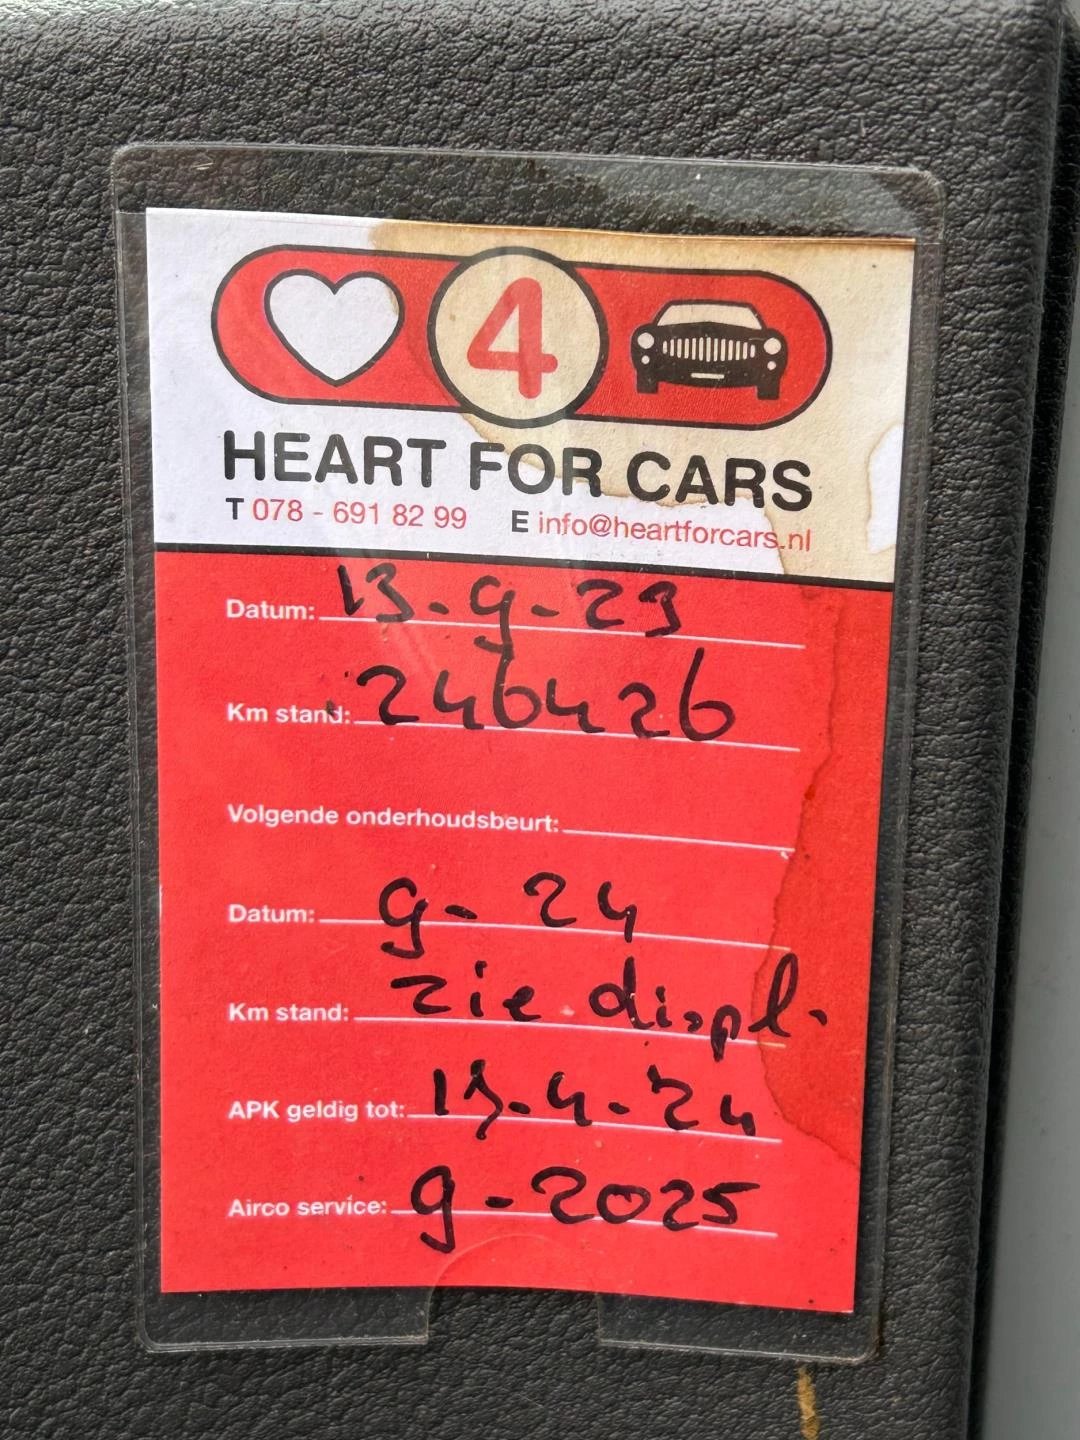 4
HEART FOR CARS
T 078 - 691 82 99 E info@heartforcars.nl
Datum: 13-9-23
Km stand: 246426
Volgende onderhoudsbeurt:
Datum: 9-24
Km stand: zie displ.
APK geldig tot: 13-4-24
Airco service: 9-2025